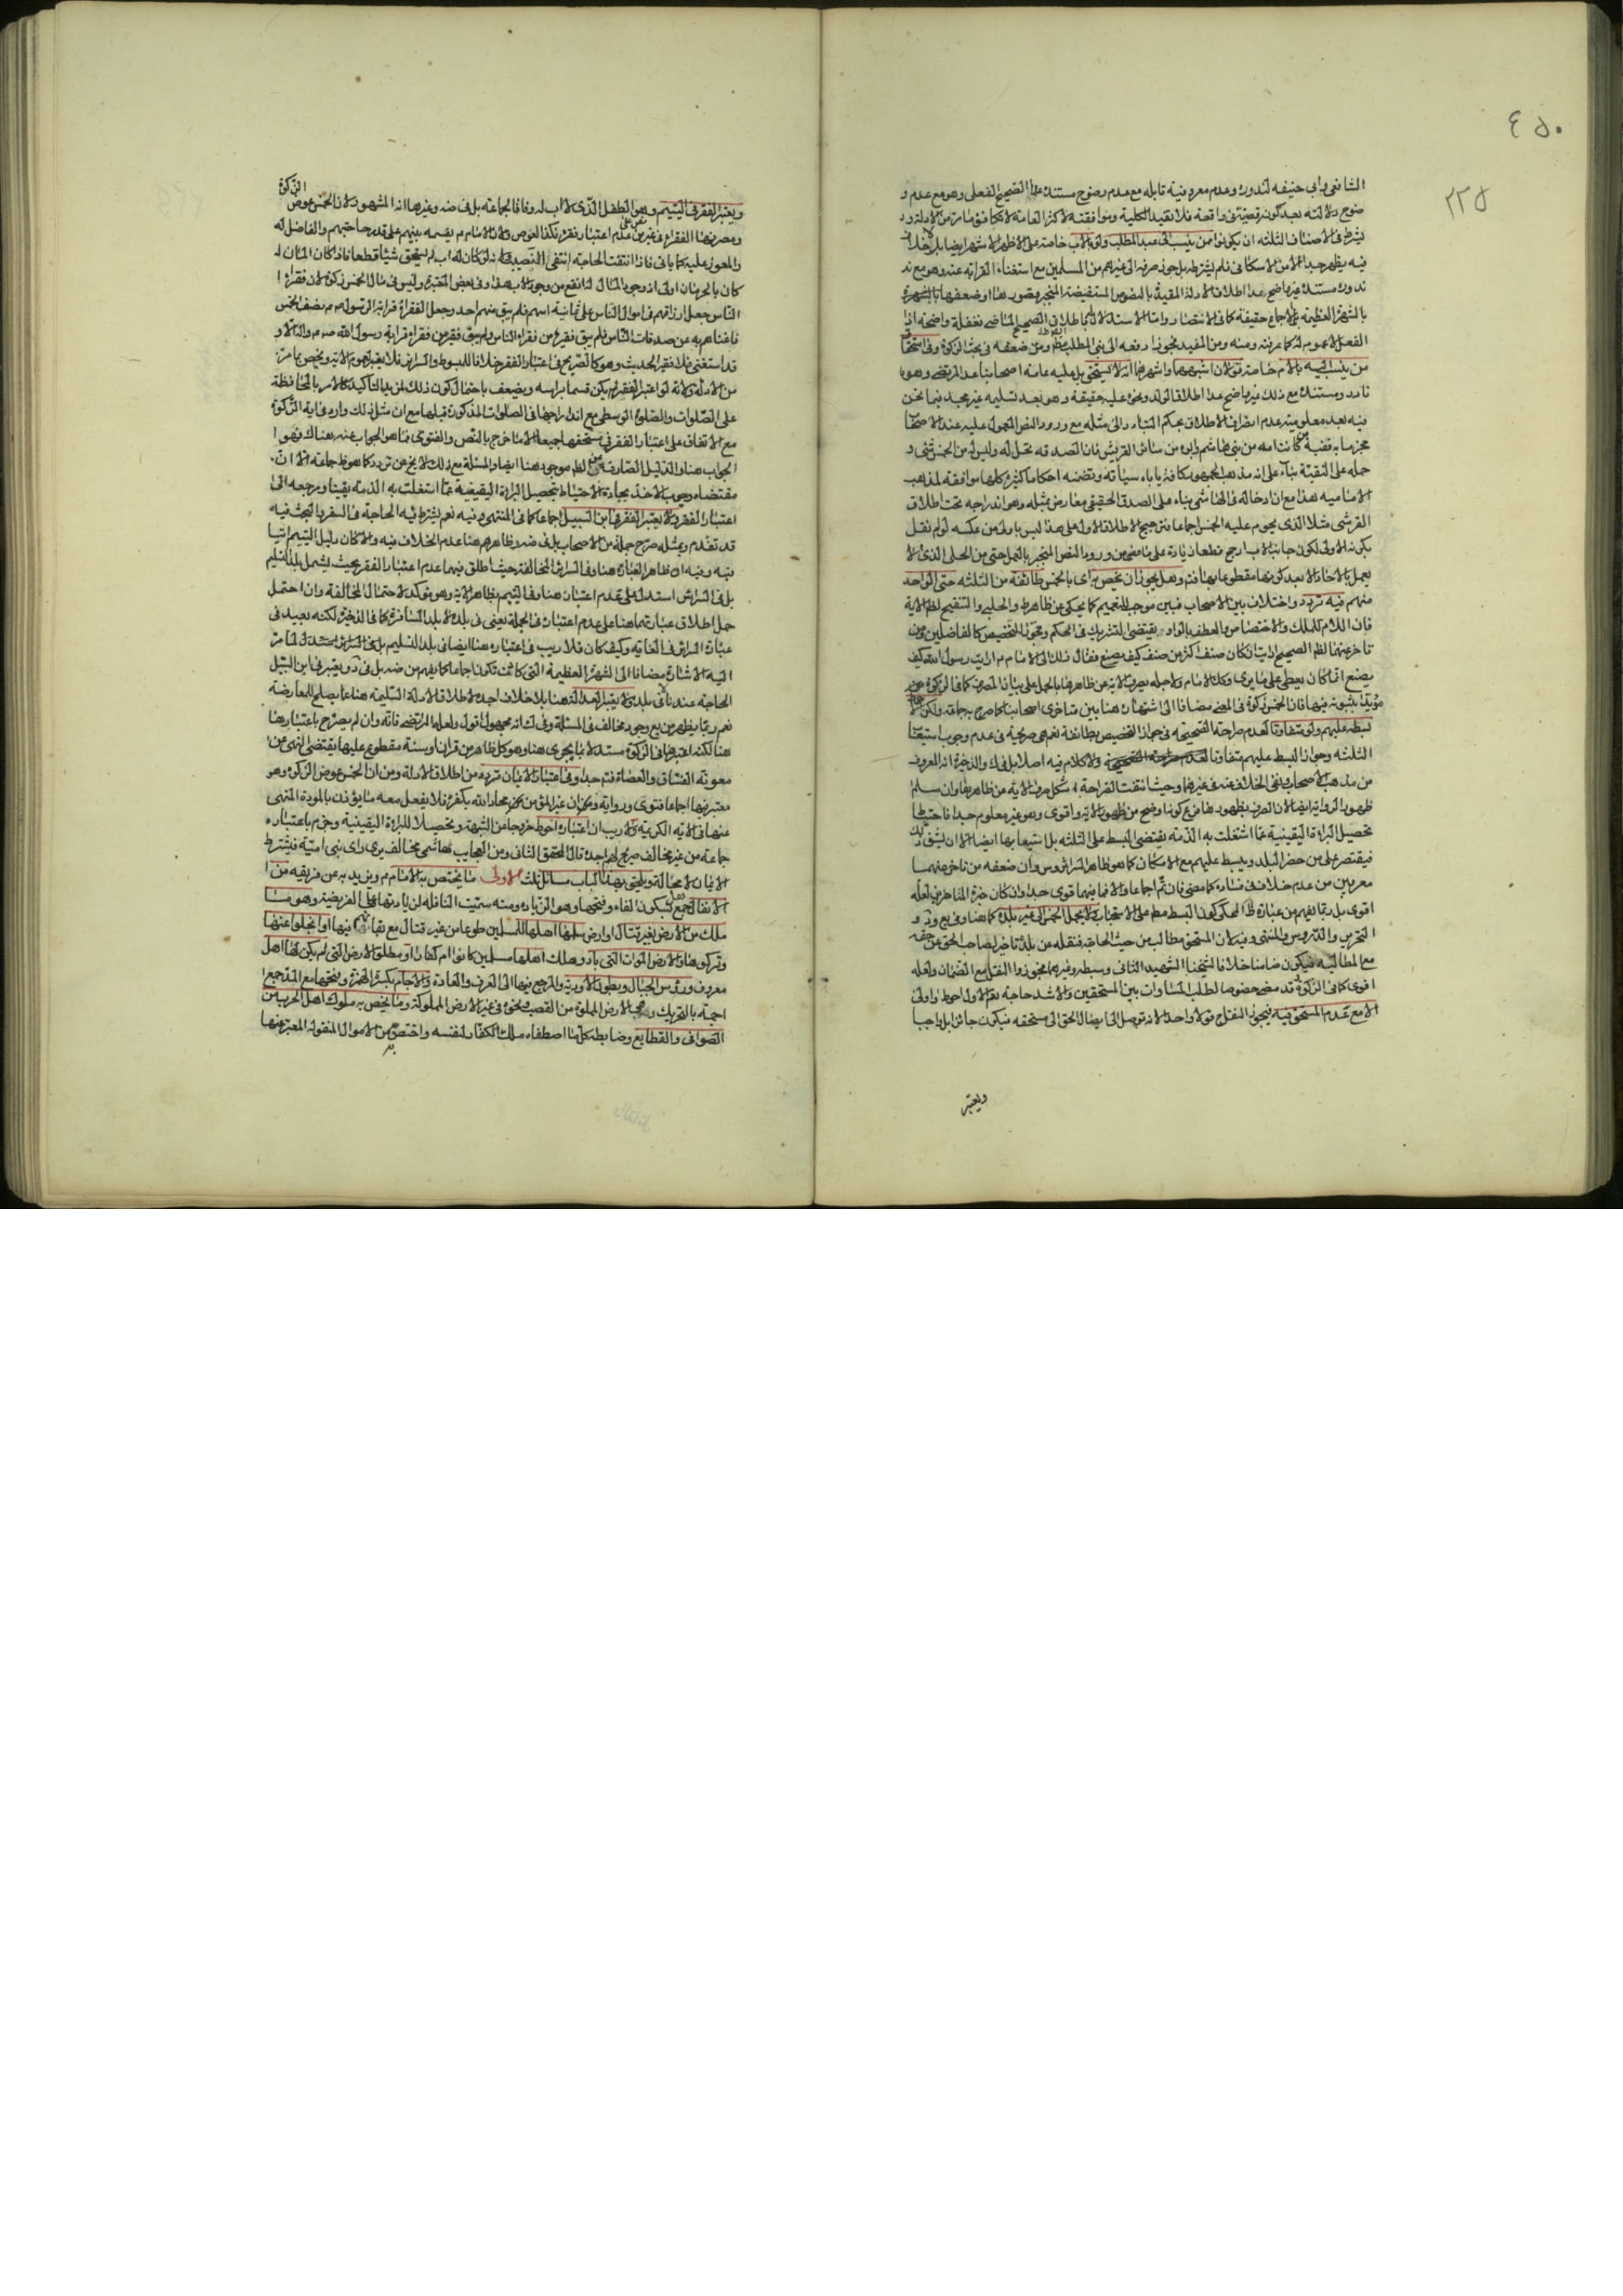 ٤٥٠
٢٢٥
الشافعي وابي حنيفه لندوره وعدم معروفية قايله مع عدم وضوح مستنده عدا الصحيح الفعلى وهو مع عدم و
ضوح دلالته بعد كونه قضية فى واقعة فلا يفيد الكلية وموافقته لاكثر العامة لا يكافؤ ما مر من الادلة ولا
يشترط فى الاصناف الثلثه ان يكونوا ممن ينسب الى عبد المطلب ولو بالاب خاصة على الاظهر الاشهر ايضا بل لا خلاف
فيه يظهر جدا الا من الاسكافى فلم يشترطه بل جوز صرفه الى غيرهم من المسلمين مع استغناء القرابة عنه وهو مع
ندوره مستنده غير واضح عدا اطلاق الادلة المقيدة بالنصوص المستفيضة المنجبر قصور
بالشهرة العظيمة بل الاجماع حقيقة كما فى الانتصار واما الاستدلال باطلاق الصحيح الماضى فغفلة واضحة اذ
الفعل لا عموم له كما عرفته ومنه ومن المفيد فجوزا دفعه الى بنى المطلب ومن ضعفه فى بحث الزكوة وفى استحقاق
من ينسب اليه بالام خاصة قولان اشبههما واشهرهما انه لا يستحق بل عليه عامة اصحابنا عدا المرتضى وهو
نادر ومستنده مع ذلك غير واضح عدا اطلاق الولد ونحوه عليه حقيقة وهو بعد تسليمه غير مجد فيما نحن
فيه لعدم معلومية عدم انصراف الاطلاق بحكم التبادر الى مثله مع ورود النص المعمول عليه عند الاصحاب
كانت امه من بنى هاشم وابوه من سائر القريش فان الصدقه تحل له وليس له من الخمس شئ و
حمله على التقية بناء على انه مذهب الجمهور كافة ياباه سياقه وتضمنه احكاما كثيرة كلها موافقة لمذهب
الاماميه هذا مع ان ادخاله فى الهاشمى بناء على الصدق الحقيقى معارض بمثله وهو اندراجه تحت اطلاق
القرشى مثلا الذى يحرم عليه الخمس اجماعا فترجيح الاطلاق الاول على هذا ليس باولى من عكسه لو لم نقل
بكونه الاولى لكون جانب الاب ارجح قطعا زيادة على ما مضى من ورود النص المنجبر بالعمل حتى من الحلى الذى لا
يعمل بالاخاد الا بعد كونها مقطوعا بها فتم وهل يجوز ان يخص به اى بالخمس طائفة من الثلثه حتى الواحد
منهم فيه تردد واختلاف بين الاصحاب فبين موجب للتعميم كما يحكى عن ظاهر ط والحلبى والتنقيح لظ الاية
فان اللام للملك والاختصاص والعطف بالواو يقتضى التشريك فى الحكم ومجوز للتخصيص كالفاضلين ومن
تاخر عنهما لظ الصحيح ارايت ان كان صنف اكثر من صنف كيف يصنع فقال ذلك الى الامام ارايت رسول الله كيف
يصنع انما كان يعطى على ما يرى وكذا الامام ولاجله يصرف الاية عن ظاهرها بالحمل على بيان المصرف كما فى الزكوة
لبسطه عليهم ولو متفاوتا لعدم صراحة الصحيحه فى جواز التخصيص بطائفة نعم هى صريحة فى عدم وجوب استيعاب
الثلثه وجواز البسط عليهم متفاوتا ولا كلام فيه اصلا بل فى ك والذخيرة انه المعروف
من مذهب الاصحاب ونفى الخلاف عنه فى غيرهما وحيث انتفت القراحة اشكل صرف الاية عن ظاهرها وان سلم
ظهور الرواية ايضا لان المعروف ظهورها فرع كونه اوضح من ظهور الاية واقوى وهو غير معلوم جدا فاحتياطا
تحصيل البراءة اليقينية عما اشتغلت به الذمة يقتضى البسط على الثلثه بل استيعابها ايضا الا ان يشق ذلك
فيقتصر على من حضر البلد ويبسط عليهم مع الامكان كما هو ظاهر السرائر وس وان ضعفه من تاخر عنهما
معربين عن عدم خلاف فى فساده كما مضى فان تم اجماعا والا فما بينهما قوى جدا وان كان خيرة المتاخرين لعله
اقوى بل ربما يفهم من عبارة المحكى كون البسط مط على الاستحباب ولا يحمل الخمس الى غير بلده كما هنا وفى يع ود و
التحرير والدروس والمنتهى وفيه لان المستحق مطالب من حيث الحاجة فنقله عن بلده تاخير لصاحب الحق عن حقه
مع المطالبة فيكون ضامنا خلافا لشيخنا الشهيد الثانى وسبطه وغيرهما فجوزوا النقل مع الضمان ولعله
اقوى كما فى الزكوة قد مضى خصوصا لطلب المساوات بين المستحقين والاشد حاجة نعم الاول احوط واولى
الا مع عدم المستحق فيه فيجوز النقل ح قولا واحدا لانه توصل الى ايصال الحق الى مستحقه فيكون جائزا بل واجبا
ويعتبر
ويعتبر الفقر فى اليتيم وهو الطفل الذى لا اب له وفاقا لجماعة بل فى ضه وغيرها انه المشهور لان الخمس عوض الزكوة
ومصرفها الفقراء فى غير من نص على عدم اعتبار فقره فكذا العوض ولان الامام م يقسمه بينهم على قدر حاجتهم والفاضل له
والمعوز عليه كما ياتى فاذا انتفت الحاجة انتفى النصيب ولانه لو كان له اب لم يستحق شيئا قطعا فاذا كان المال له
كان بالحرمان اولى اذ وجود المال له انفع من وجود الاب هذا وفى بعض المعتبرة وليس فى مال الخمس زكوة لان فقراء
الناس جعل ارزاقهم فى اموال الناس على ثمانية اسهم فلم يبق منهم احد وجعل الفقراء قرابة الرسول ص نصف الخمس
فاغناهم به عن صدقات الناس فلم يبق فقير من فقراء الناس ولم يبق فقير من فقراء قرابة رسول الله ص م والا و
قد استغنى فلا فقير الحديث وهو كالصريح فى اعتبار الفقر خلافا للمبسوط والسرائر فلا يعتبر لعموم الاية ويخص بما مر
من الادلة ولانه لو اعتبر الفقر لم يكن قسما براسه ويضعف باحتمال كون ذلك لمزيد التاكيد كالامر بالمحافظة
على الصلوات والصلوة الوسطى مع اندراجها فى الصلوات المذكورة قبلها مع ان مثل ذلك وارد فى اية الزكوة
مع الاتفاق على اعتبار الفقر فى مستحقها جميعا الا ما خرج بالنص والفتوى فما هو الجواب عنه هناك فهو ا
لجواب هنا والدليل الصارف عن الظ موجود هنا ايضا والمسئلة مع ذلك لا يخ عن تردد كما هو ظ جماعة الا ان
مقتضاه وجوب الاخذ بجادة الاحتياط تحصيل البراءة اليقينية عما اشتغلت به الذمة يقينا ومرجعه الى
اعتبار الفقر ولا يعتبر الفقر فى ابن السبيل اجماعا كما فى المنتهى وفيه نعم يشترط فيه الحاجة فى السفر بالبحث فيه
قد تقدم وبمثله صرح جملة من الاصحاب بل فى ضه وظاهرهم هنا عدم الخلاف فيه والا كان دليل اليتيم اتيا
فيه وفيه ان ظاهر العبارة هنا وفى السرائر المخالفة حيث اطلق فيهما عدم اعتبار الفقر بحيث يشمل بلد التسليم
بل فى السرائر استدل على عدم اعتباره هنا وفى اليتيم بظاهر الاية وهو يؤكد الاحتمال المخالفة وان احتمل
حمل اطلاق عبارتهما هنا على عدم اعتباره فى الجملة يعنى فى بلده لا بلد المسافرة كما فى الذخيرة لكنه بعيد فى
عبارة السرائر فى الغاية وكيف كان فلا ريب فى اعتباره هنا ايضا فى بلد التسليم
اليه الاشارة مضافا الى الشهرة العظيمة التى كادت تكون اجماعا كما يفهم من ضه بل فى د و يعتبر فى ابن السبيل
الحاجة عندنا فى بلده لا يعتبر العدالة هنا بلا خلاف اجده لاطلاق الادلة السليمة هنا عما يصلح للمعارضة
نعم ربما يظهر من يع وجود مخالف فى المسئلة وفى ك انه مجهول القول ولعله المرتضى فانه وان لم يصرح باعتبارها
هنا لكنه اعتبرها فى الزكوة مستدلا بما يجرى هنا وهو كل ظاهر من قران او سنة مقطوع عليها يقتضى النهى عن
معونة الفساق والعصاة فتم جدا وفى اعتبار الايمان تردد من اطلاق الادلة ومن ان الخمس عوض الزكوة وهو
معتبر فيها اجماعا فتوى ورواية وبان غير المؤمن محاد الله بكفره فلا يفعل معه ما يؤذن بالمودة المنهى
عنها فى الاية الكريمة ولا ريب ان اعتباره احوط خروجا عن الشبهة وتحصيلا للبراءة اليقينية وجزم باعتباره
جماعة من غير مخالف صريح لهم اجده قال المحقق الثانى ومن العجايب هاشمى مخالف يرى راى بنى امية فيشترط
الايمان لا محالة ويلحق بهذا الباب مسائل ثلث الاولى ما يختص به الامام م ويزيد به عن فريقه من ا
لانفال جمع نفل بسكون الفاء وفتحها وهو الزيادة ومنه سميت النافلة لزيادتها على الفريضة وهو ما
ملك من الارض بغير قتال او ارض سلمها اهلها للمسلمين طوعا من غير قتال مع بقائهم فيها او انجلوا عنها
وتركوها والارض الموات التى باد وهلك اهلها مسلمين كانوا ام كفارا او مطلق الارض التى لم يكن لها اهل
معروف ورؤس الجبال وبطون الاودية والمرجع فيها الى العرف والعادة والاجام بكسر الهمزة وفتحها مع المد جمع ا
جمة بالتحريك وهى الارض المملوة من القصب ونحوه فى غير الارض المملوكة وما يخص به ملوك اهل الحرب من
الصوافى والقطايع وضابطه كل ما اصطفاه ملك الكفار لنفسه واختص به من الاموال المنقولة المعبر عنها